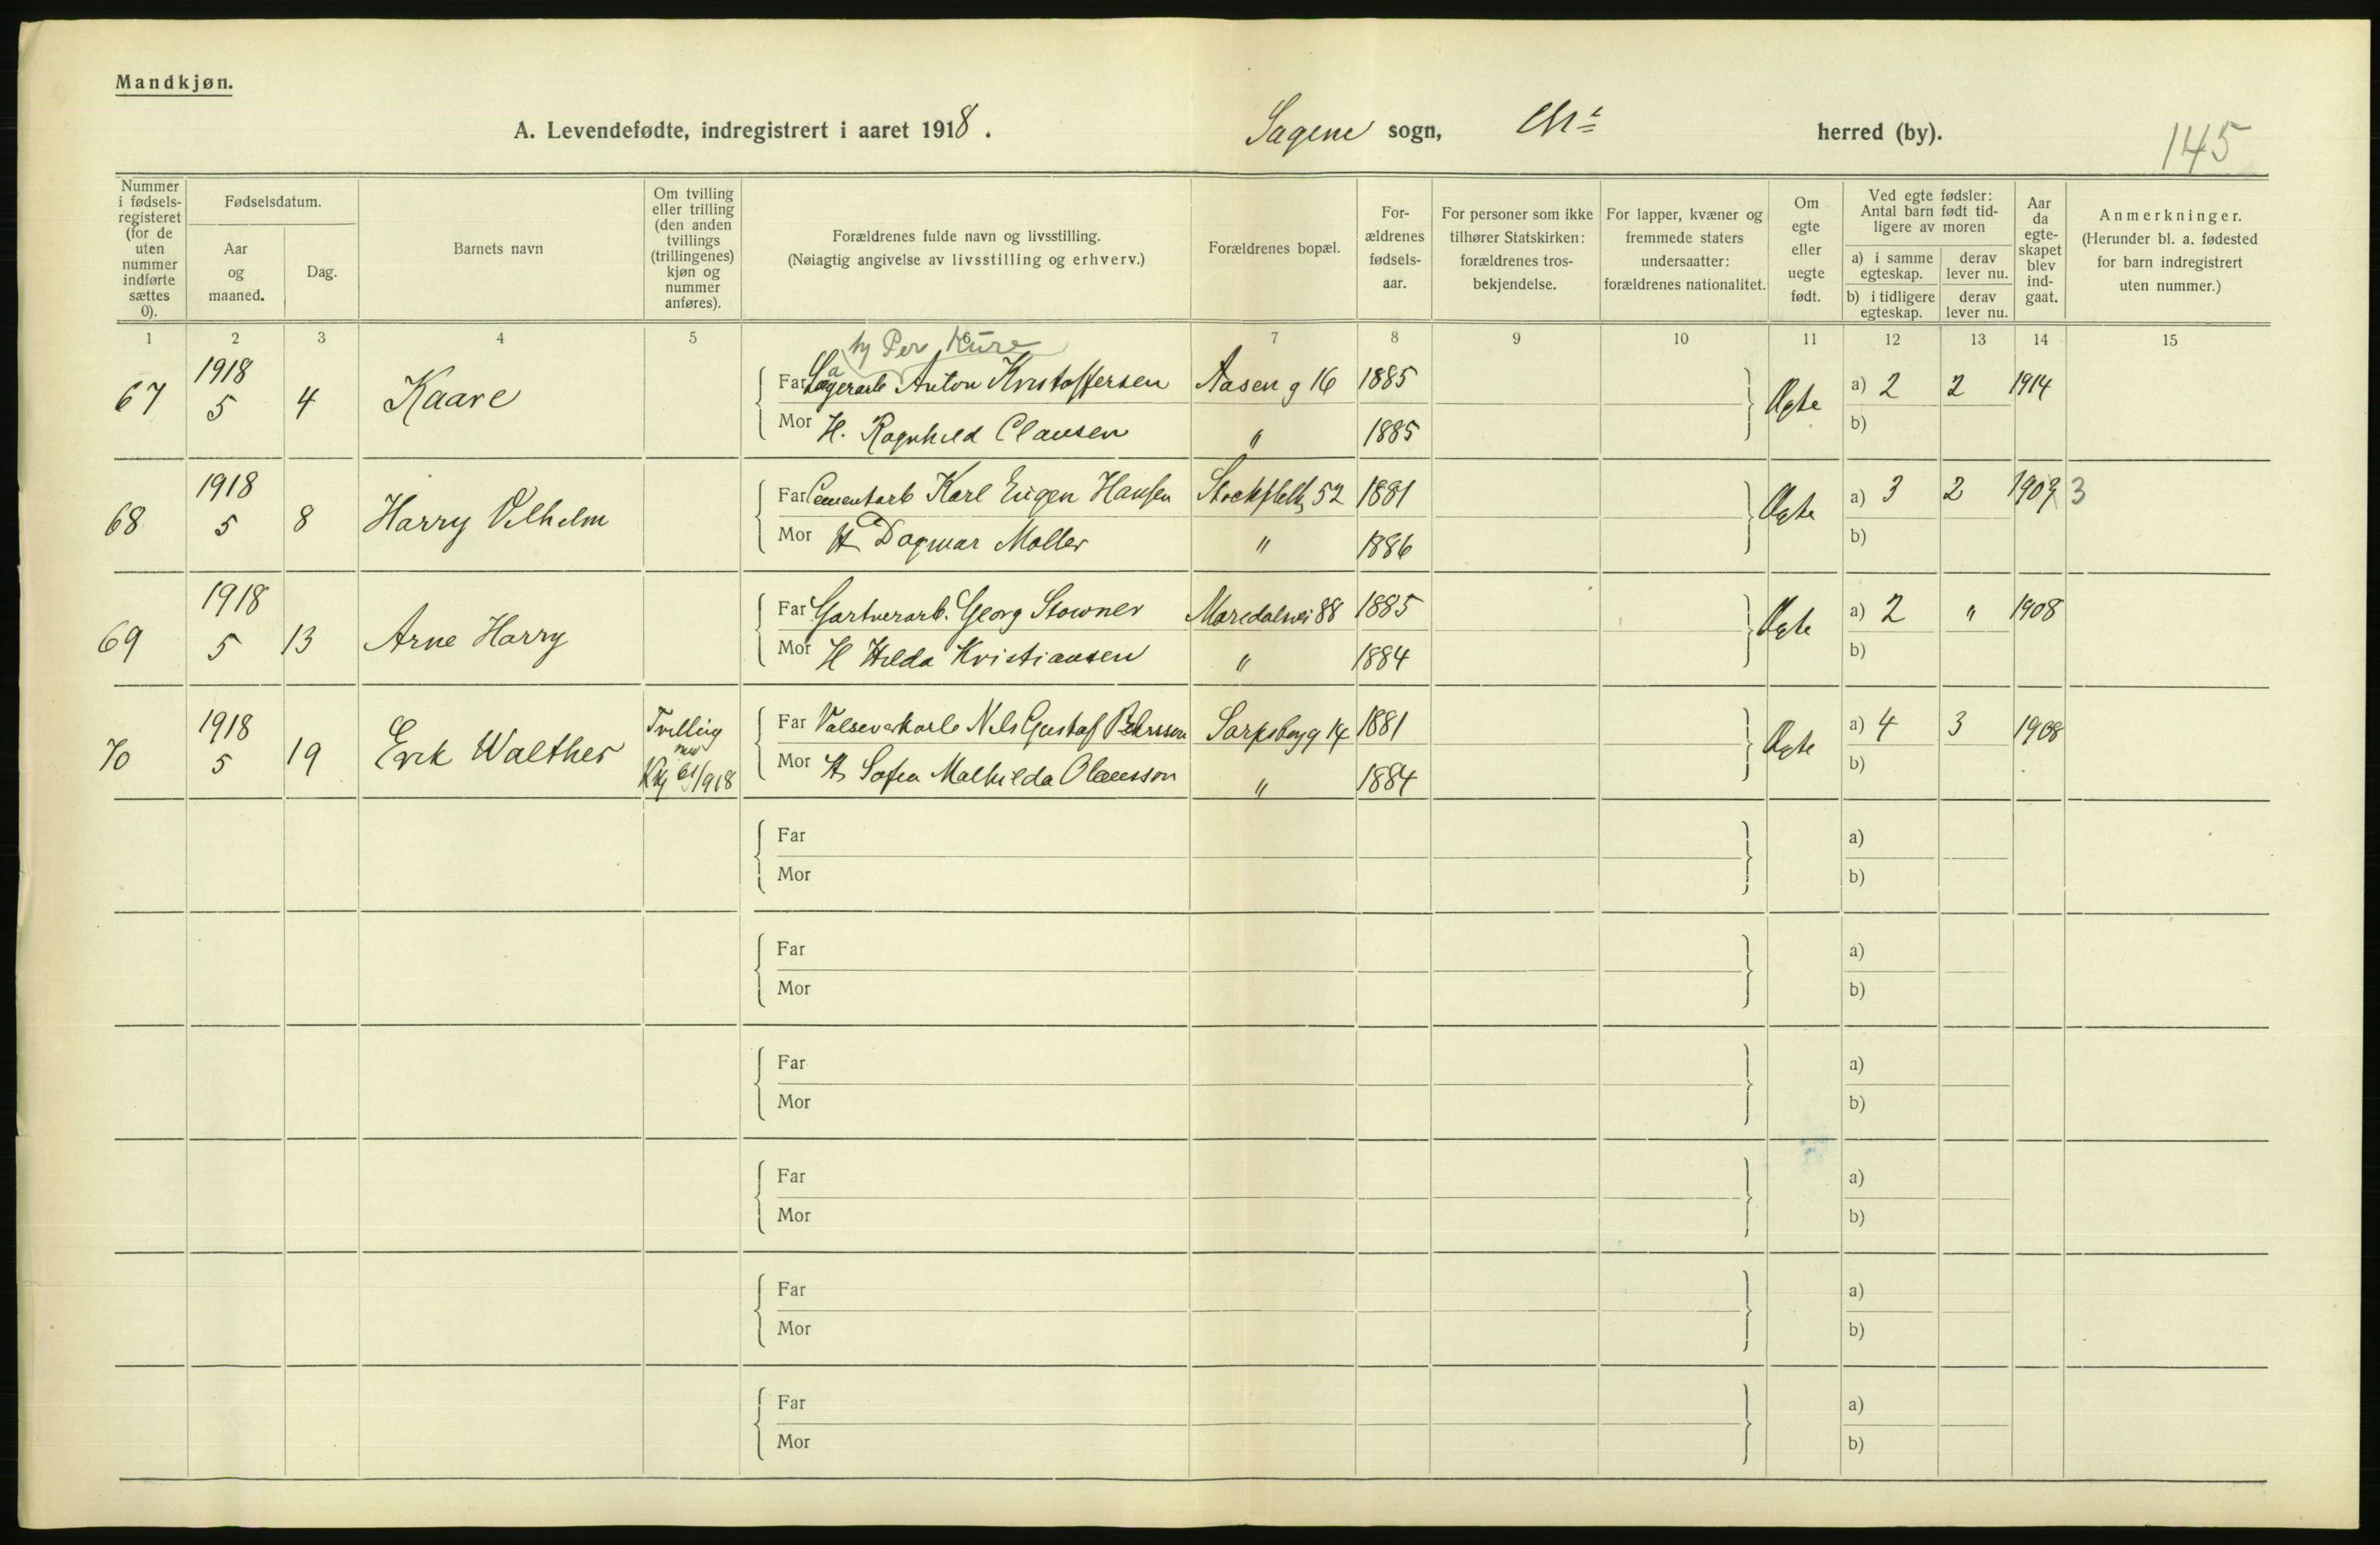 Mandkjøn.
A. Levendefødte, indregistrert i aaret 1918.
Sagene sogn, Chra herred (by).
145
Nummer i fødsels-registeret (for de uten nummer indførte sættes 0).
Fødselsdatum.
Aar og maaned.
Dag.
Barnets navn
Om tvilling eller trilling (den anden tvillings (trillingenes) kjøn og nummer anføres).
Forældrenes fulde navn og livsstilling.
(Nøiagtig angivelse av livsstilling og erhverv.)
Forældrenes bopæl.
For-ældrenes fødsels-aar.
For personer som ikke tilhører Statskirken: forældrenes tros-bekjendelse.
For lapper, kvæner og fremmede staters undersaatter: forældrenes nationalitet.
Om egte eller uegte født.
Ved egte fødsler: Antal barn født tid-ligere av moren
a) i samme egteskap.
derav lever nu.
b) i tidligere egteskap.
derav lever nu.
Aar da egte-skapet blev ind-gaat.
Anmerkninger.
(Herunder bl. a. fødested for barn indregistrert uten nummer.)
1 2 3 4 5 6 7 8 9 10 11 12 13 14 15
Per Kure
67 1918 5 4 Kaare
Far Lagerarb Anton Kristoffersen Aaseng 16 1885 Egte a) 2 2 1914
Mor H. Ragnhild Clausen " 1885 b)
68 1918 5 8 Harry Vilhelm
Far Cementarb Karl Eugen Hansen Stockfletg 52 1881 Egte a) 3 2 1909 3
Mor H Dagmar Møller " 1886 b)
69 1918 5 13 Arne Harry
Far Gartnerarb. Georg Stowner Maridalsvei 88 1885 Egte a) 2 " 1908
Mor H Hilda Kristiansen " 1884 b)
70 1918 5 19 Erik Walther Tvilling med Kkj 61/1918
Far Valseverkarb Nils Gustaf Pehrsson Sarpsborgg 14 1881 Egte a) 4 3 1908
Mor H Sofia Mathilda Olausson " 1884 b)
Far a)
Mor b)
Far a)
Mor b)
Far a)
Mor b)
Far a)
Mor b)
Far a)
Mor b)
Far a)
Mor b)